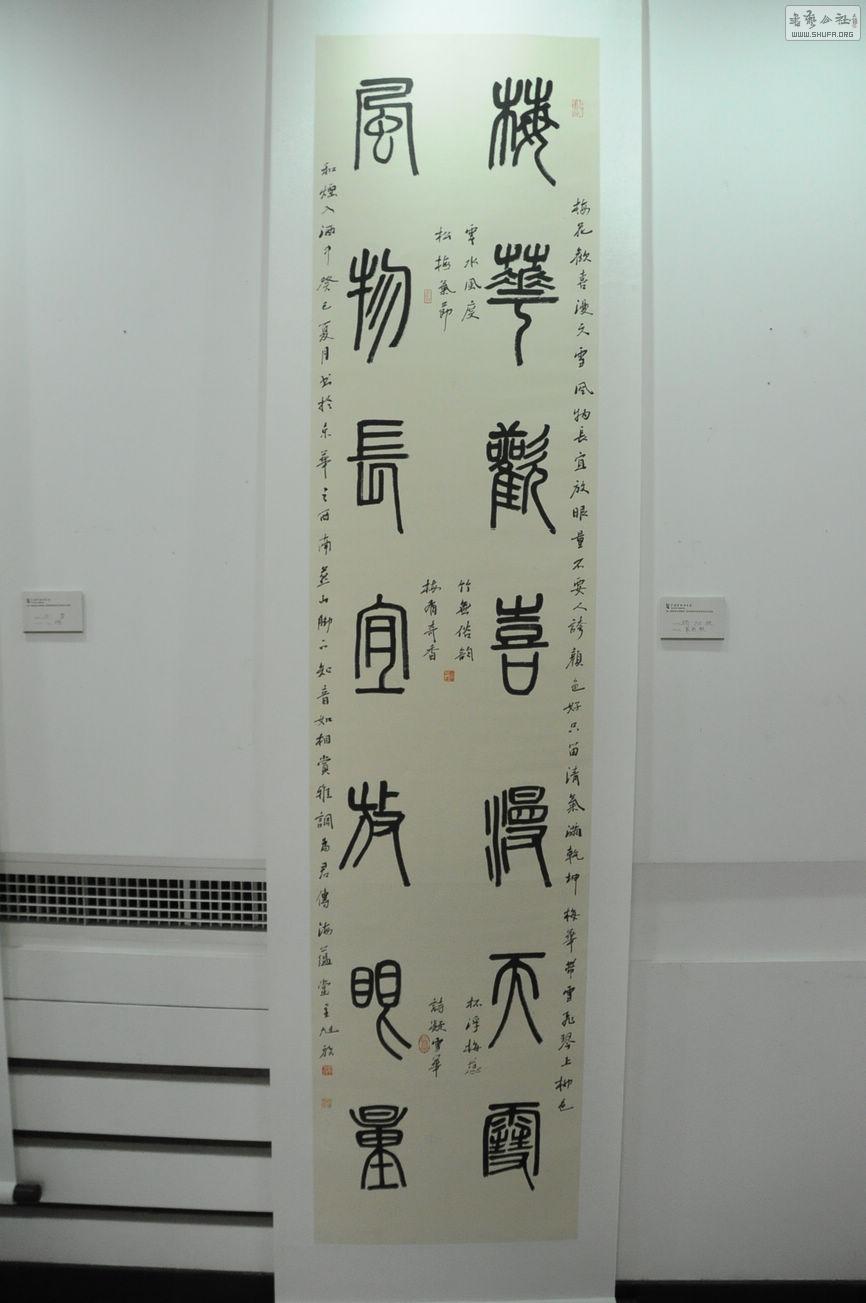 梅華歡喜漫天雪
風物長宜放眼量
梅花歡喜漫天雪風物長宜放眼量不要人誇顏色好只留清氣滿乾坤梅華帶雪飛琴上柳色
和煙入酒中癸巳夏月書於京華之西南燕山腳下知音如相賞雅調為君傳海蘊堂主旭欣
雲水風度
松梅氣節
竹無俗韵
梅有奇香
杯浮梅蕊
詩凝雪華
WWW.SHUFA.ORG